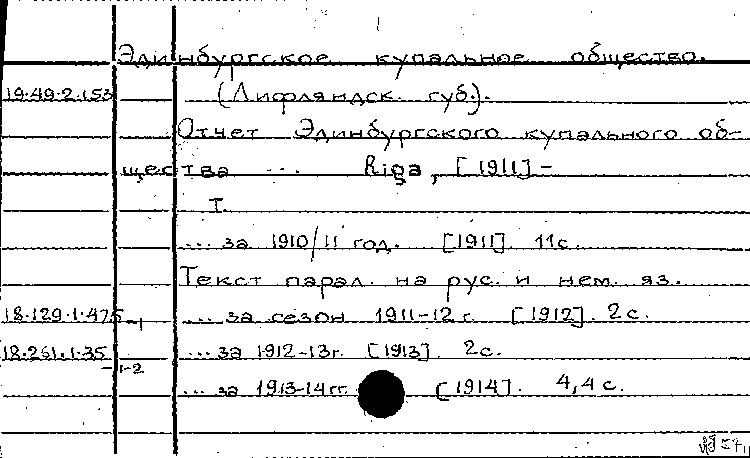 Эдинбургское купальное общество.
19.49.2.153 (Лифляндск. губ.).
Отчет Эдинбургского купального об-
щества ... Riga, [1911] -
I.
... за 1910/11 год. [1911]. 11с.
Текст парал. на рус. и нем. яз.
18.129.1.475-1 ... за сезон 1911-12 г. [1912]. 2с.
18.261.1.35-1-2 ... за 1912-13г. [1913]. 2с.
... за 1913-14 гг. [1914]. 4,4 с.